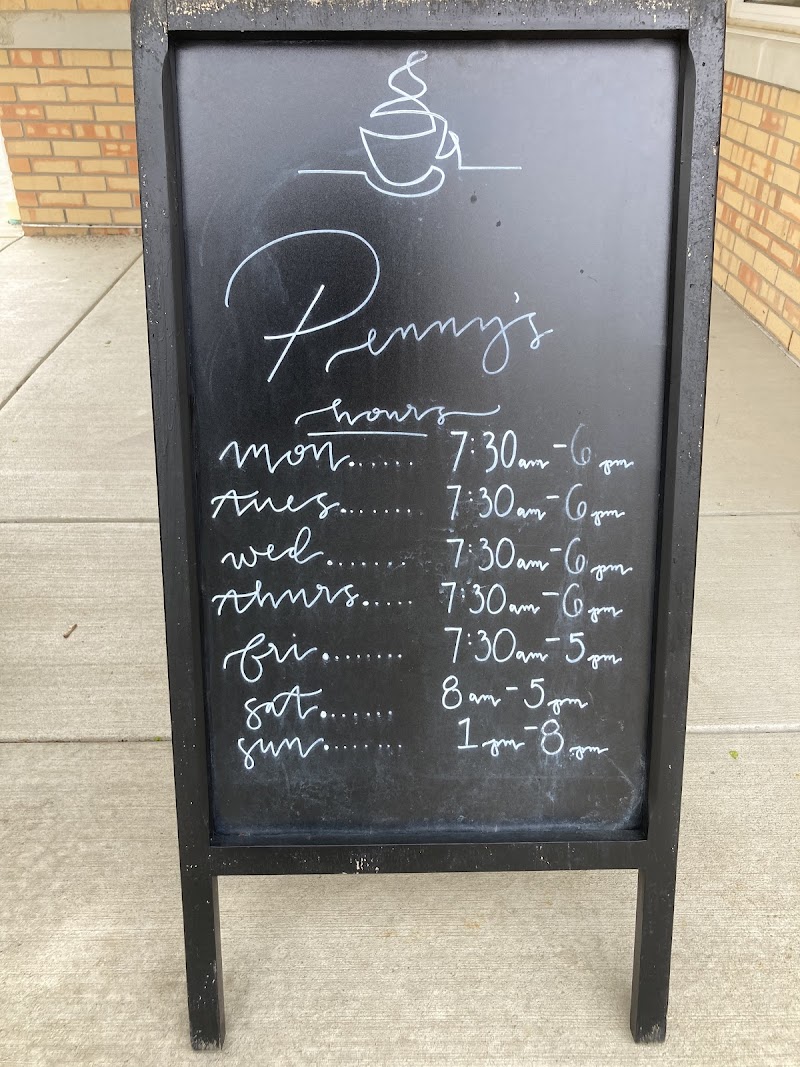 Penny's
hours
mon...... 7:30am-6pm
tues....... 7:30am-6pm
wed....... 7:30am-6pm
thurs..... 7:30am-6pm
fri........ 7:30am-5pm
sat....... 8am-5pm
sun........ 1pm-8pm